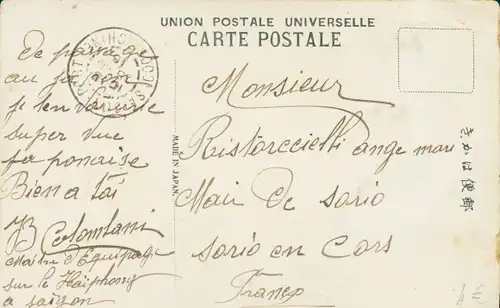 UNION POSTALE UNIVERSELLE
CARTE POSTALE
De passage
au japon
je t'en
super vue
japonaise
Bien a toi
JB Colombani
Maitre d'Equipage
sur le Haïphong
a saigon
MADE IN JAPAN
Monsieur
Ristorccielli ange mari
Mair De sorio
sorio en Cors
France
きかは便郵